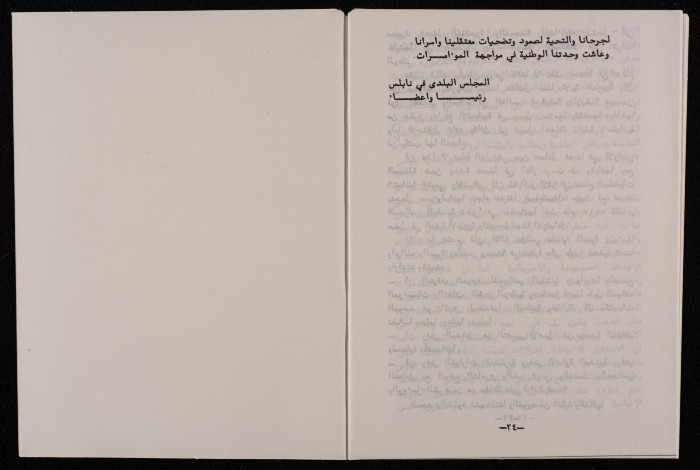 لجرحانا والتحية لصمود وتضحيات معتقلينا واسرانا
وعاشت وحدتنا الوطنية في مواجهة الموٴامـــرات.
المجلس البلدى في نابلس
رئيســــا واعضـــاٴ
—٢٤—